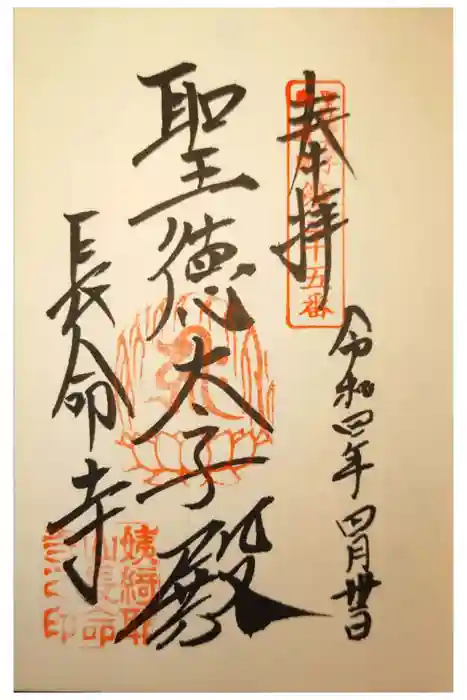 奉拝
十五番
令和四年四月丗日
聖徳太子殿
長命寺
姨綺耶
山長命
寺之印